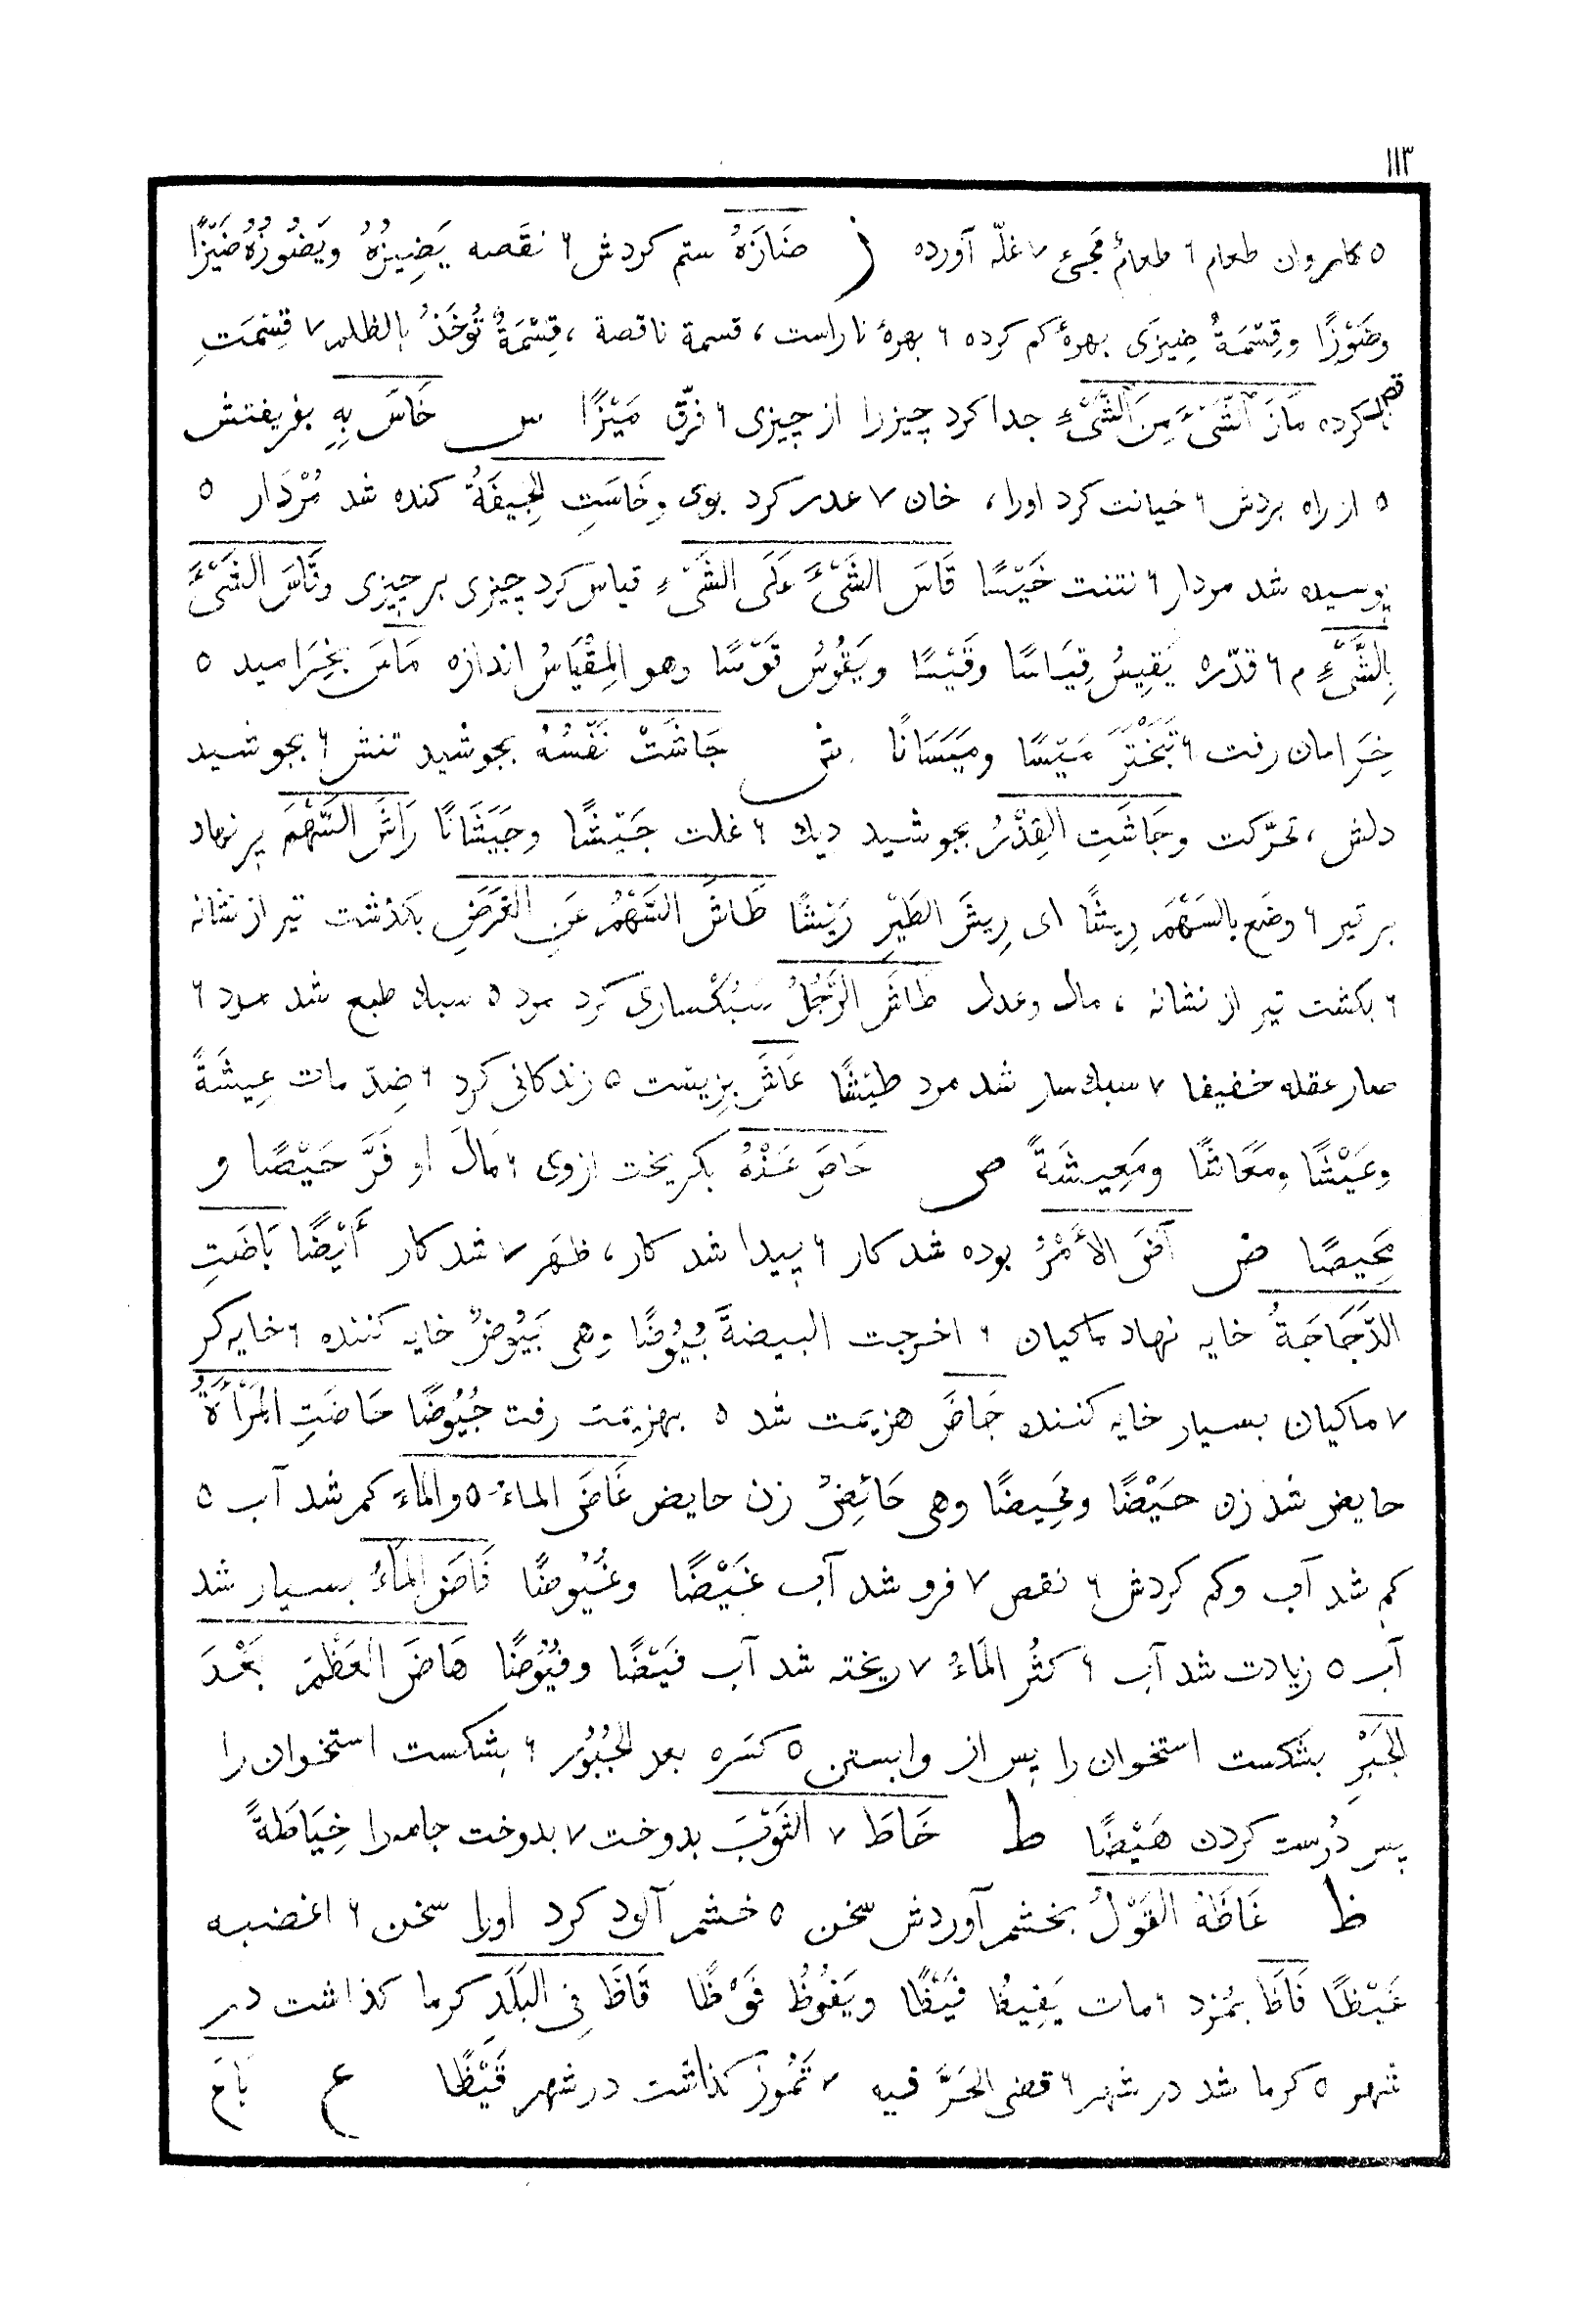 ١١٣
٥ كاروان طعام ٦ طعام مجئ ٧ غلّه آورده ز ضَازَهُ ستم كردش ٦ نقَصه يَضِيزُهُ ويَضُوزُهُ ضَيْزًا
وضَوْزًا وقِسْمَةٌ ضِيزَى بهرهٔ كم كرده ٦ بهرهٔ ناراست، قسمة ناقصة، قِسْمَةٌ تُوخَذُ بالظلم ٧ قِسْمَتِ
كرده مَازَ الشَّىْءَ مِنَ الشَّىْءِ جدا كرد چيز را از چيزى ٦ فرّق مَيْزًا س خَاسَ بِهِ بفريفتش
٥ از راه بردش ٦ خيانت كرد اورا، خان ٧ عدر كرد بوى وخَاسَتِ الجِيفَةُ كنده شد مُرْدَار ٥
پوسيده شد مردار ٦ نتنت خَيْسًا قَاسَ الشَّىْءَ عَلَى الشَّىْءِ قياس كرد چيزى بر چيزى وقَاسَ الشَّىْءَ
بِالشَّىْءِ م ٦ قدّره يَقِيسُ قِيَاسًا وقَيْسًا ويَقُوسُ قَوْسًا وهو المِقْيَاسُ اندازه مَاسَ بخِرَاميد ٥
خِرَامان رفت ٦ تَبَخْتَرَ مَيْسًا ومَيَسَانًا ش جَاشَتْ نَفْسُهُ بجوشيد تنش ٦ بجوشيد
دلش، تحرّكت وجَاشَتِ القِدْرُ بجوشيد ديك ٦ غلت جَيْشًا وجَيَشَانًا رَاشَ السَّهْمَ پر نهاد
بر تير ٦ وضع بالسَهْمَ رِيشًا اى رِيشَ الطَيْرِ رَيْشًا طَاشَ السَّهْمُ عَنِ الغَرَضِ بكذشت تير از نشانه
٦ بكشت تير از نشانه، مال وعدل طَاشَ الرَّجُلُ سَبُكْسارى كرد مرد ٥ سبك طبع شد مرد ٦
صار عقله خفيفا ٧ سبك سار شد مرد طيْشًا عَاشَ بزيست ٥ زندكانى كرد ٦ ضِدّ مات عِيشَةً
وعَيْشًا ومَعَاشًا ومَعِيشَةً ص حَاصَ عَنْهُ بكريخت ازوى ٦ مَالَ او فَرَّ حَيْصًا و
مَحِيصًا ض آضَ الأَمْرُ بوده شد كار ٦ پيدا شد كار، ظهَر ٧ شد كار أَيْضًا بَاضَتِ
الدَّجَاجَةُ خايه نهاد ماكيان ٦ اخرجت البيضةَ بُيُوضًا وهى بَيُوضٌ خايه كننده ٦ خايه كر
٧ ماكيان بسيار خايه كننده جَاضَ هزيمت شد ٥ بهزيمت رفت جُيُوضًا حَاضَتِ المَرْأَةُ
حايض شد زن حَيْضًا ومَحِيضًا وهى حَائِضٌ زن حايض غَاضَ الماءُ ٥ والمَاءَ كم شد آب ٥
كم شد آب وكم كردش ٦ نقص ٧ فرو شد آب غَيْضًا وغُيُوضًا فَاضَ المَاءُ بسيار شد
آب ٥ زيادت شد آب ٦ كثُر المَاءُ ٧ ريخته شد آب فَيْضًا وفُيُوضًا هَاضَ العَظْمَ بَعْدَ
الجَبْرِ بشكست استخوان را پس از وابستن ٥ كسَره بعد الجُبُور ٦ بشكست استخوان را
پس دُرست كردن هَيْضًا ط خَاطَ ٧ الثَوْبَ بدوخت ٧ بدوخت جامه را خِيَاطَةً
ظ غَاظَهُ القَوْلُ بخشم آوردش سخن ٥ خشم آلود كرد اورا سخن ٦ اغضبه
غَيْظًا فَاظَ بمُرد ٦ مات يَفِيظُ فَيْظًا ويَفُوظُ فَوْظًا قَاظَ فِى البَلَدِ كرما كذاشت در
شهر ٥ كرما شد در شهر ٦ قضى الحَرَّ فيه ٧ تَمُوز كذاشت در شهر قَيْظًا ع بَاعَ